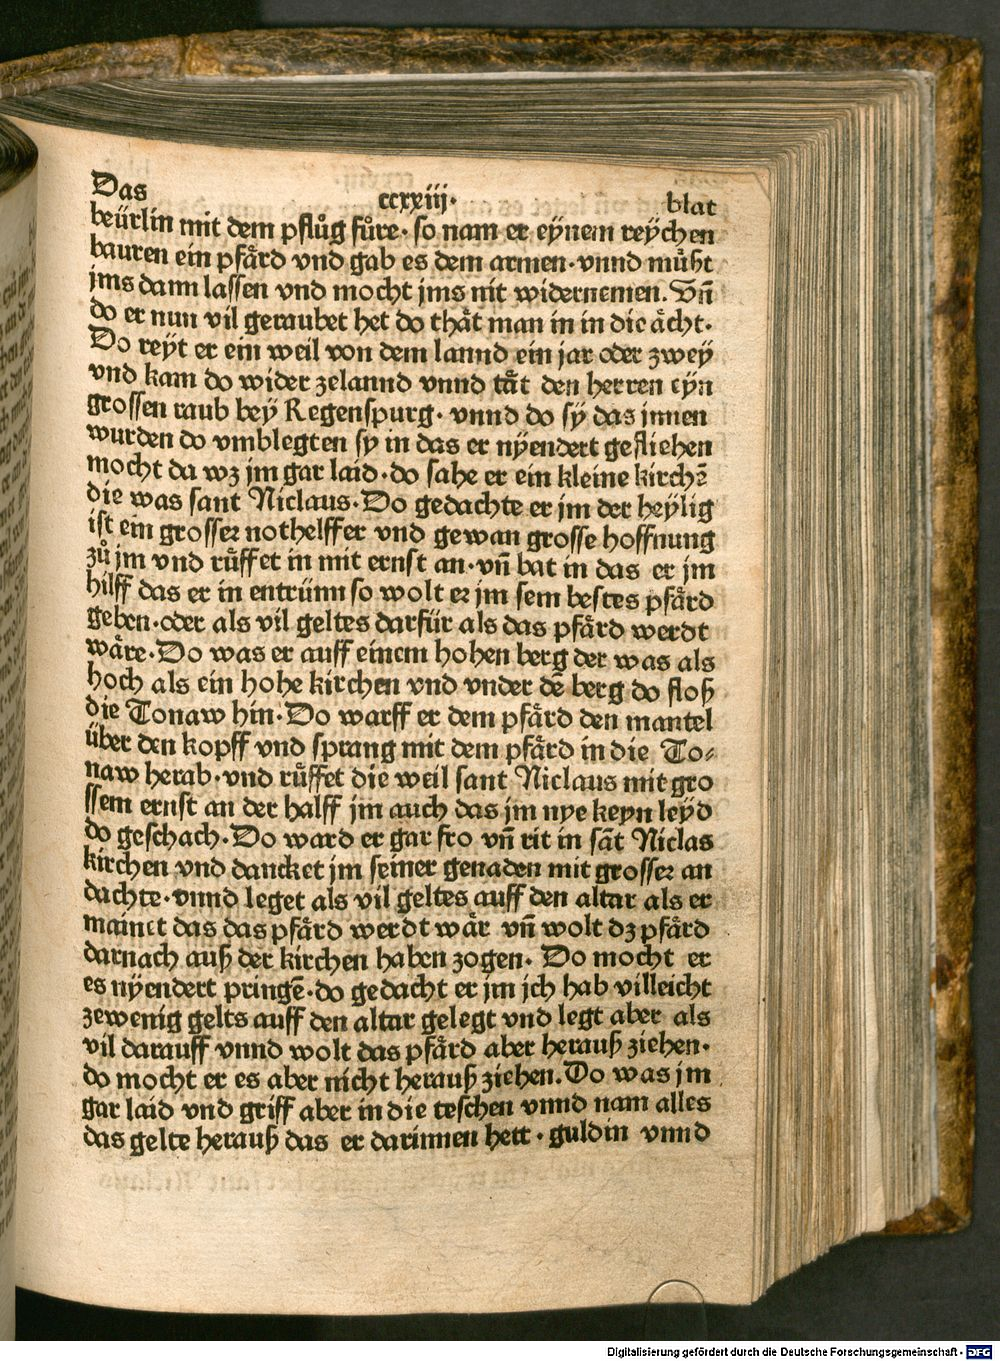 Das ccxxiij· blat
beürlin mit dem pflůg fůre· so nam er eÿnem reÿchen
bauren ein pfärd vnd gab es dem armen·vnnd můßt
jms dann lassen vnd mocht jms nit widernemen. Vn̄
do er nun vil geraubet het do thät man in in die ächt·
Do reÿt er ein weil von dem lannd ein jar oder zweÿ
vnd kam do wider zelannd vnnd tät den herren eÿn
grossen raub beÿ Regenspurg· vnnd do sÿ das jnnen
wurden do vmblegten sy in das er nÿendert gefliehen
mocht da wz jm gar laid·do sahe er ein kleine kirchē
die was sant Niclaus·Do gedachte er jm der heÿlig
ist ein grosser nothelffer vnd gewan grosse hoffnung
zů jm vnd rüffet in mit ernst an·vn̄ bat in das er jm
hilff das er in entrünn so wolt er jm sein bestes pfärd
geben·oder als vil geltes darfür als das pfärd werdt
wäre·Do was er auff einem hohen berg der was als
hoch als ein hohe kirchen vnd vnder dē berg do floß
die Tonaw hin·Do warff er dem pfärd den mantel
über den kopff vnd sprang mit dem pfärd in die To⸗
naw herab·vnd rüffet die weil sant Niclaus mit gro
ssem ernst an der halff jm auch das jm nye keyn leÿd
do geschach·Do ward er gar fro vn̄ rit in sāt Niclas
kirchen vnd dancket jm seiner genaden mit grosser an
dachte·vnnd leget als vil geltes auff den altar als er
mainet das das pfärd werdt wär vn̄ wolt dz pfärd
darnach auß der kirchen haben zogen· Do mocht er
es nÿendert pringē·do gedacht er jm jch hab villeicht
zewenig gelts auff den altar gelegt vnd legt aber als
vil darauff vnnd wolt das pfärd aber herauß ziehen·
do mocht er es aber nicht herauß ziehen.Do was jm
gar laid vnd griff aber in die teschen vnnd nam alles
das gelte herauß das er darinnen hett·guldin vnnd
Digitalisierung gefördert durch die Deutsche Forschungsgemeinschaft - DFG